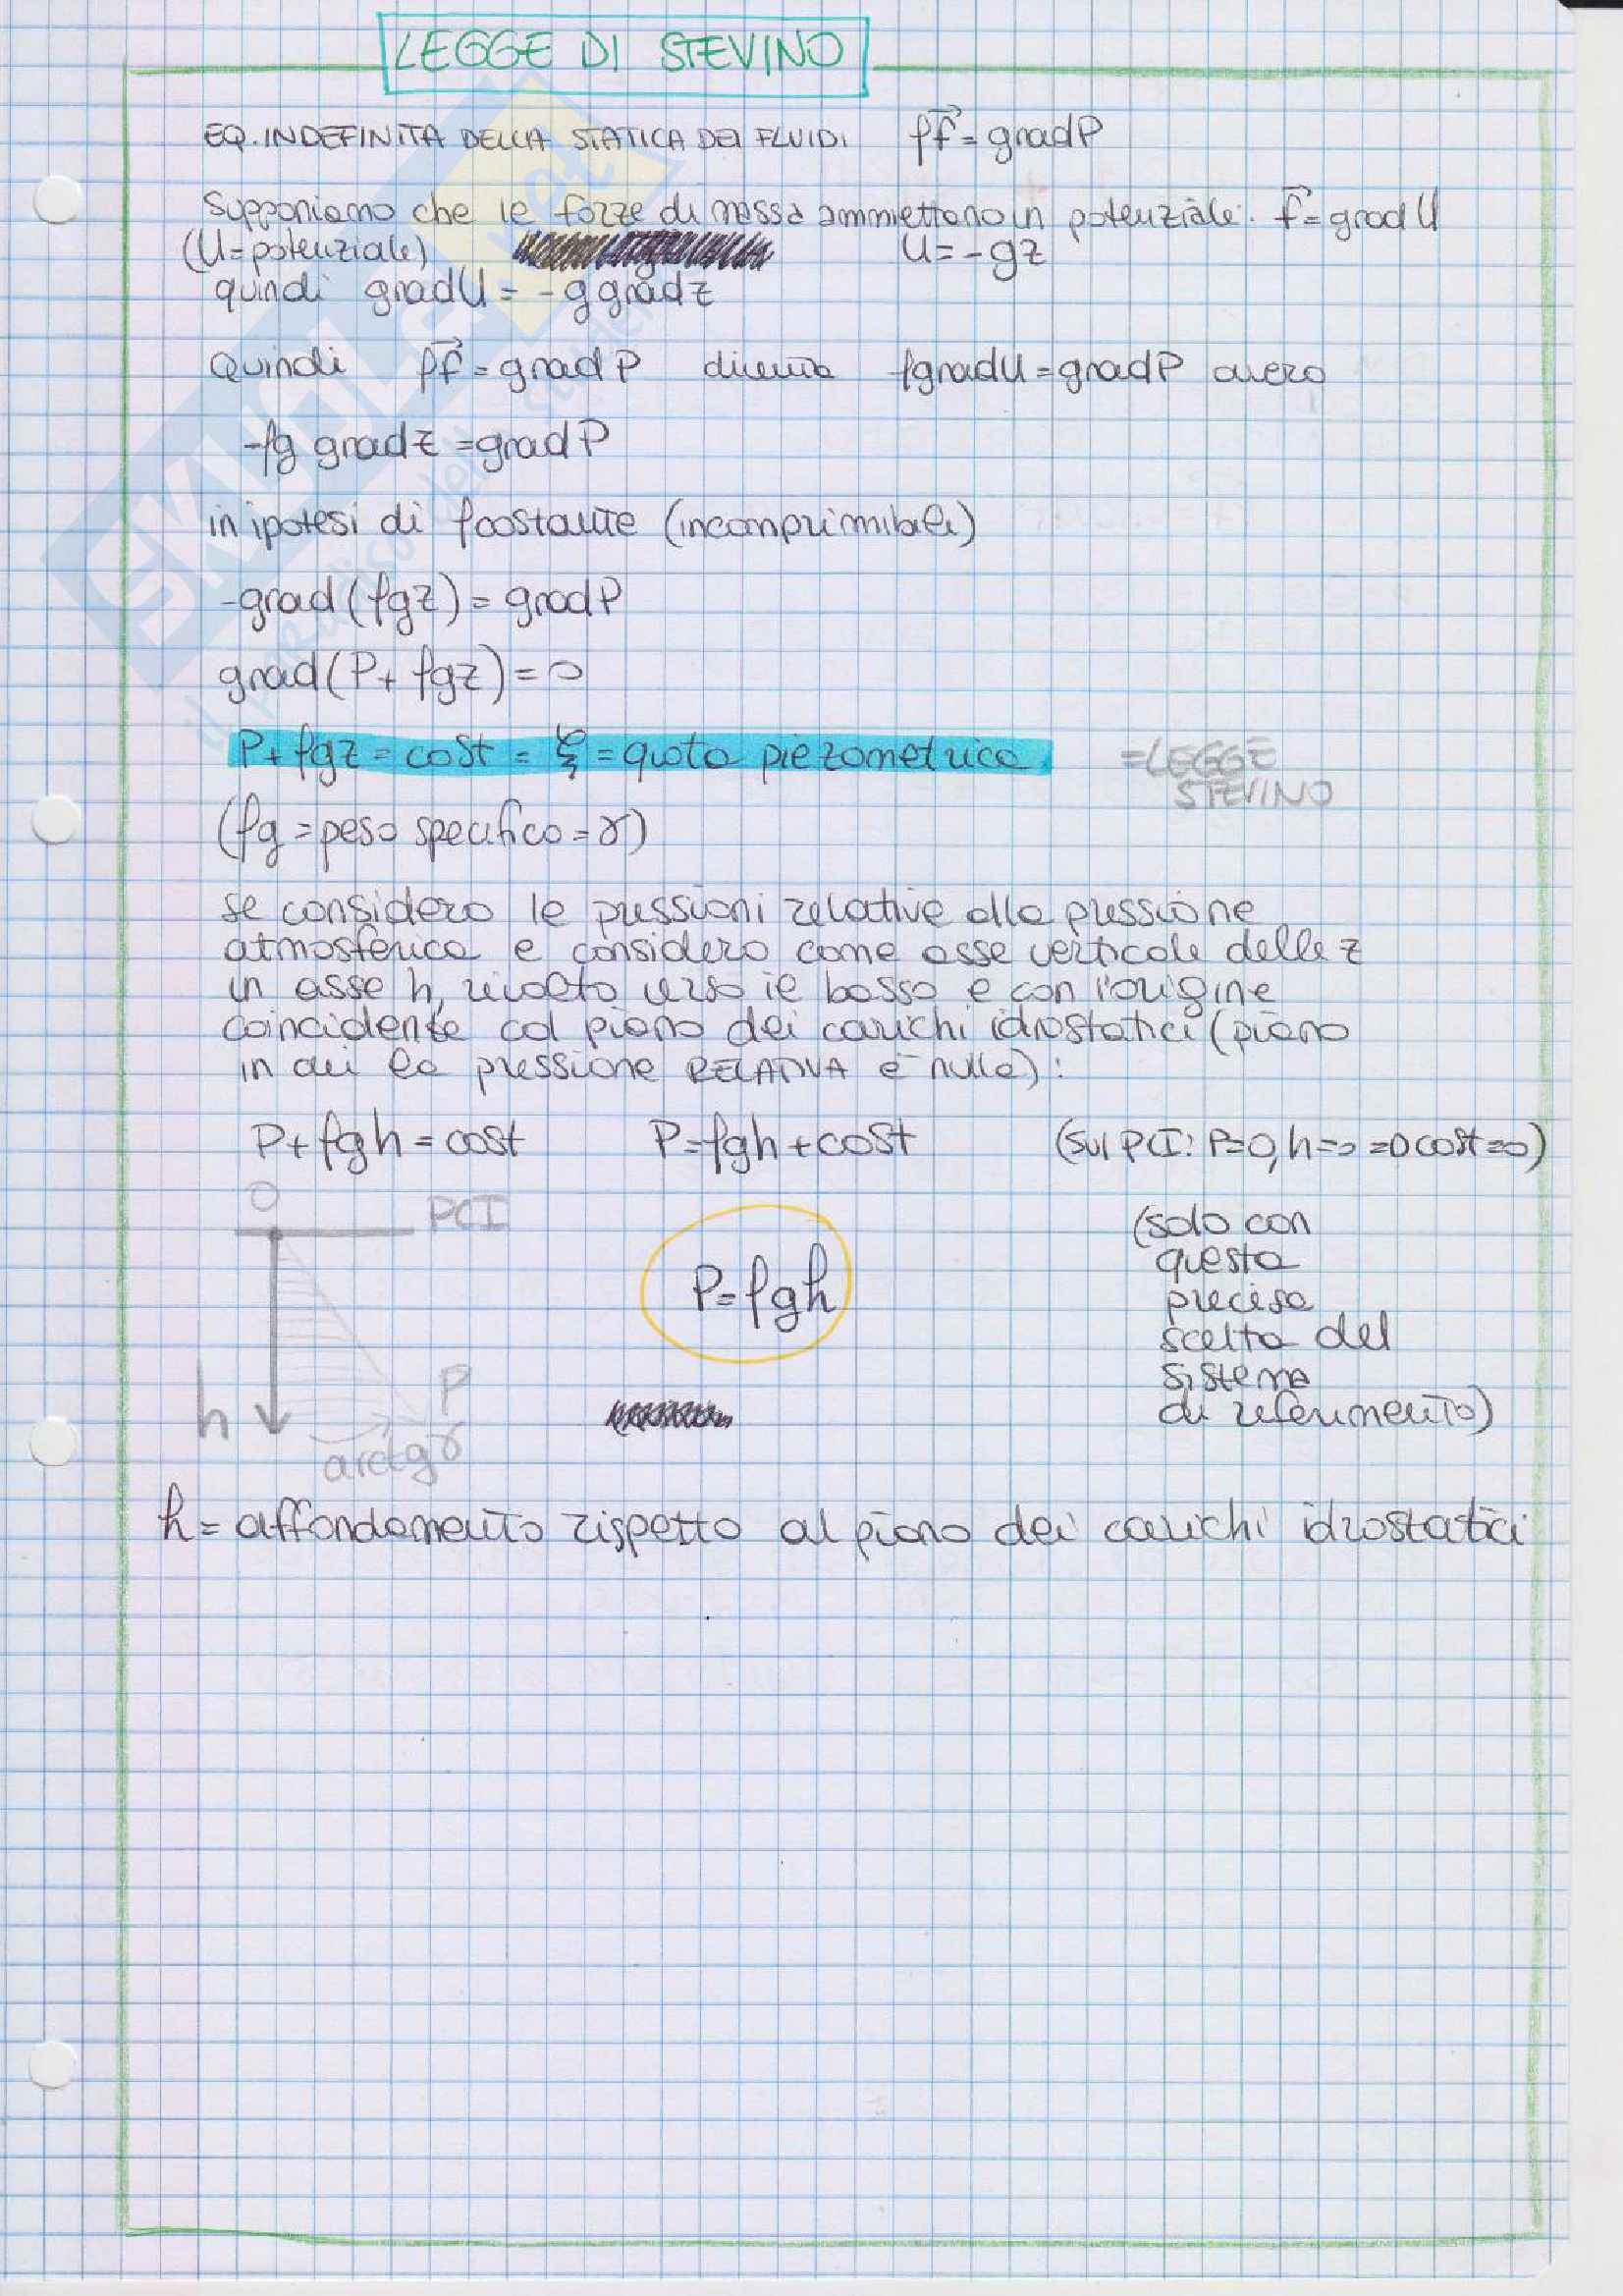 LEGGE DI STEVINO
EQ. INDEFINITA DELLA STATICA DEI FLUIDI ρf⃗ = grad P
Supponiamo che le forze di massa ammettano un potenziale. f⃗ = grad U
(U = potenziale) U = -gz
quindi grad U = -g grad z
Quindi ρf⃗ = grad P diventa ρ grad U = grad P ovvero
-ρg grad z = grad P
in ipotesi di ρ costante (incomprimibile)
-grad(ρgz) = grad P
grad(P + ρgz) = 0
P + ρgz = cost = ξ = quota piezometrica = LEGGE
STEVINO
(ρg = peso specifico = γ)
se considero le pressioni relative alla pressione
atmosferica e considero come asse verticale delle z
un asse h, rivolto verso il basso e con l'origine
coincidente col piano dei carichi idrostatici (piano
in cui la pressione RELATIVA è nulla):
P + ρgh = cost P = ρgh + cost (sul PCI: P=0, h=0 => cost=0)
O PCI
P = ρgh
(solo con
questa
precisa
scelta del
sistema
di riferimento)
h P
arctg γ
h = affondamento rispetto al piano dei carichi idrostatici
SKUOLA.net